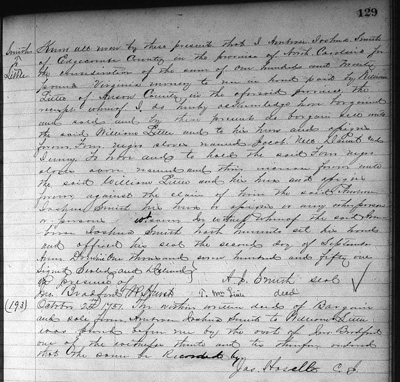 129
Know all men by these presents that I Ambrose Joshua Smith
Smith
to
Little
of Edgecombe County in the province of North Carolina for
the consideration of the sum of one hundred and Twenty
pound Virginia money to me in hand paid by William
Little of Anson County in the aforesaid province, the
receipt whereof I do hereby acknowledge have bargained
and sold and by these presents do bargain sell unto
the said William Little and to his heirs and assigns
four negro slaves named Jacob
To have and to hold the said four negro
slaves above named and their increase from unto
the said William Little and his heirs and assigns
against the claim of him the said Ambrose
Joshua Smith his heirs or assigns or any other person
or persons In witness whereof the said Am-
brose Joshua Smith hath hereunto set his hand
and affixed his seal the second day of September
Anno Domini One thousand seven hundred and Fifty one
Signed Sealed and Delivered
in presence of A. J. Smith seal
Bradford
(193) October 1751. The within written deed of Bargain
and sale from Ambrose Joshua Smith to William Little
was proved before me by the oath of Bradford
one of the witnesses thereto and the thereupon ordered
that the same be Recorded
Jas. Hasell C. J.